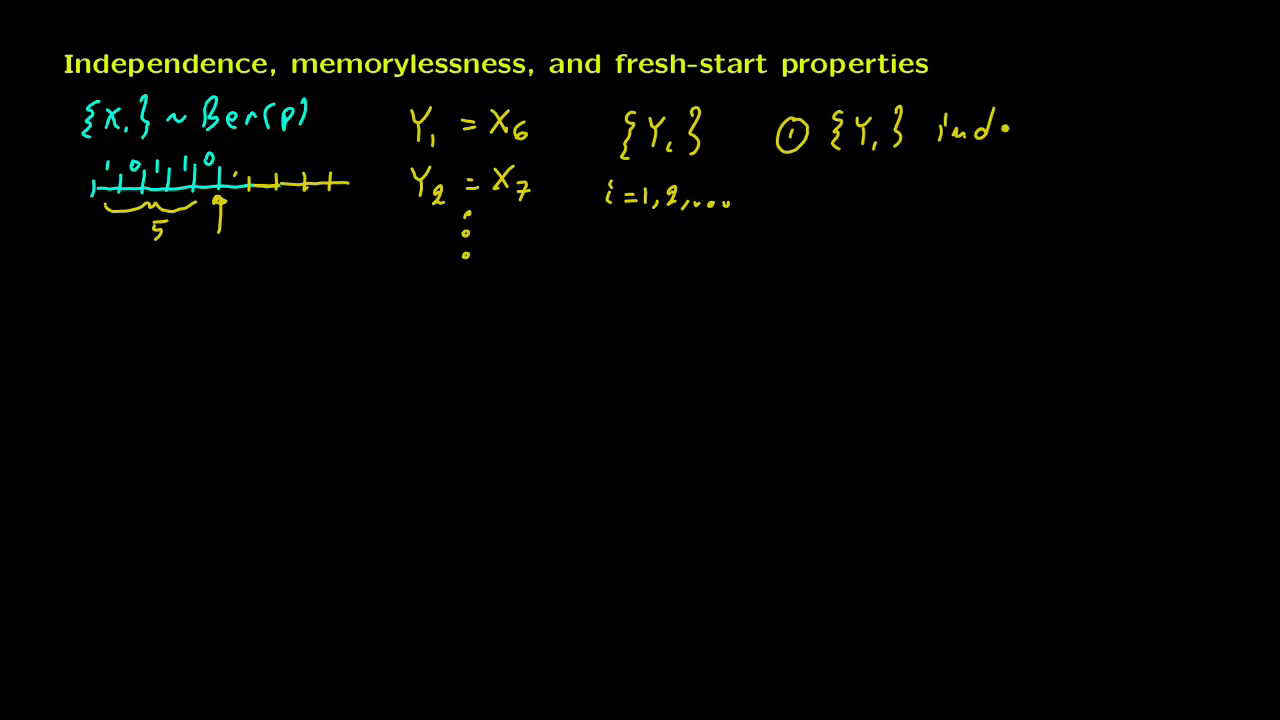 Independence, memorylessness, and fresh-start properties
{X.} ~ Ber(p)
1 0 1 1 0
5
Y₁ = X₆
Y₂ = X₇
{Yᵢ}
i = 1, 2, ...
① {Yᵢ} ind.